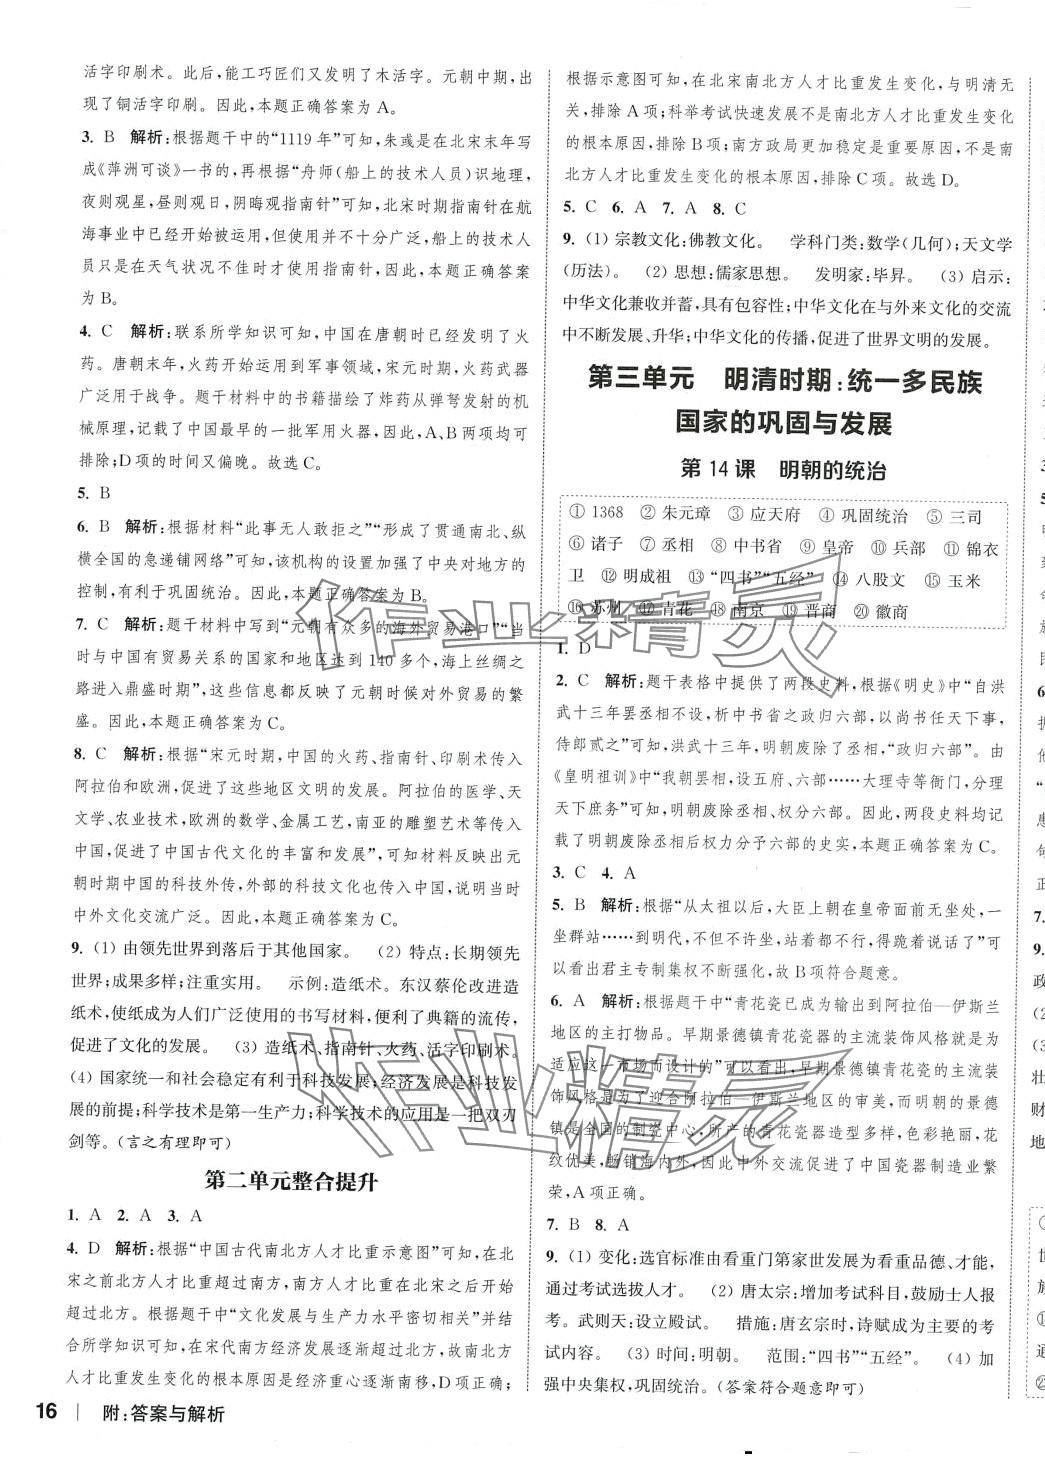 活字印刷术。此后,能工巧匠们又发明了木活字。元朝中期,出
现了铜活字印刷。因此,本题正确答案为 A。
3. B 解析:根据题干中的“1119 年”可知,朱彧是在北宋末年写
成《萍洲可谈》一书的,再根据“舟师(船上的技术人员)识地理,
夜则观星,昼则观日,阴晦观指南针”可知,北宋时期指南针在航
海事业中已经开始被运用,但使用并不十分广泛,船上的技术人
员只是在天气状况不佳时才使用指南针,因此,本题正确答案
为 B。
4. C 解析:联系所学知识可知,中国在唐朝时已经发明了火
药。唐朝末年,火药开始运用到军事领域,宋元时期,火药武器
广泛用于战争。题干材料中的书籍描绘了炸药从弹弩发射的机
械原理,记载了中国最早的一批军用火器,因此,A、B 两项均可
排除;D项的时间又偏晚。故选 C。
5. B
6. B 解析:根据材料“此事无人敢拒之”“形成了贯通南北、纵
横全国的急递铺网络”可知,该机构的设置加强了中央对地方的
控制,有利于巩固统治。因此,本题正确答案为 B。
7. C 解析:题干材料中写到“元朝有众多的海外贸易港口”“当
时与中国有贸易关系的国家和地区达到 140 多个,海上丝绸之
路进入鼎盛时期”,这些信息都反映了元朝时候对外贸易的繁
盛。因此,本题正确答案为 C。
8. C 解析:根据“宋元时期,中国的火药、指南针、印刷术传入
阿拉伯和欧洲,促进了这些地区文明的发展。阿拉伯的医学、天
文学、农业技术,欧洲的数学、金属工艺,南亚的雕塑艺术等传入
中国,促进了中国古代文化的丰富和发展”,可知材料反映出元
朝时期中国的科技外传,外部的科技文化也传入中国,说明当时
中外文化交流广泛。因此,本题正确答案为 C。
9. (1) 由领先世界到落后于其他国家。 (2) 特点:长期领先
世界;成果多样;注重实用。 示例:造纸术。东汉蔡伦改进造
纸术,使纸成为人们广泛使用的书写材料,便利了典籍的流传,
促进了文化的发展。 (3) 造纸术、指南针、火药、活字印刷术。
(4) 国家统一和社会稳定有利于科技发展;经济发展是科技发
展的前提;科学技术是第一生产力;科学技术的应用是一把双刃
剑等。(言之有理即可)
第二单元整合提升
1. A 2. A 3. A
4. D 解析:根据“中国古代南北方人才比重示意图”可知,在北
宋之前北方人才比重超过南方,南方人才比重在北宋之后开始
超过北方。根据题干中“文化发展与生产力水平密切相关”并
结合所学知识可知,在宋代南方经济发展逐渐超过北方,故南北方
人才比重发生变化的根本原因是经济重心逐渐南移,D项正确;
16 | 附:答案与解析
根据示意图可知,在北宋南北方人才比重发生变化,与明清无
关,排除 A 项;科举考试快速发展不是南北方人才比重发生变化
的根本原因,排除 B项;南方政局更加稳定是重要原因,不是南
北方人才比重发生变化的根本原因,排除 C项。故选 D。
5. C 6. A 7. A 8. C
9. (1) 宗教文化:佛教文化。 学科门类:数学(几何);天文学
(历法)。 (2) 思想:儒家思想。 发明家:毕昇。 (3) 启示:
中华文化兼收并蓄,具有包容性;中华文化在与外来文化的交流
中不断发展、升华;中华文化的传播,促进了世界文明的发展。
第三单元 明清时期:统一多民族
国家的巩固与发展
第 14 课 明朝的统治
① 1368 ② 朱元璋 ③ 应天府 ④ 巩固统治 ⑤ 三司
⑥ 诸子 ⑦ 丞相 ⑧ 中书省 ⑨ 皇帝 ⑩ 兵部 ⑪ 锦衣
卫 ⑫ 明成祖 ⑬ “四书”“五经” ⑭ 八股文 ⑮ 玉米
⑯ 苏州 ⑰ 青花 ⑱ 南京 ⑲ 晋商 ⑳ 徽商
1. D
2. C 解析:题干表格中提供了两段史料,根据《明史》中“自洪
武十三年罢丞相不设,析中书省之政归六部,以尚书任天下事,
侍郎贰之”可知,洪武十三年,明朝废除了丞相,“政归六部”。由
《皇明祖训》中“我朝罢相,设五府、六部……大理寺等衙门,分理
天下庶务”可知,明朝废除丞相、权分六部。因此,两段史料均记
载了明朝废除丞相后权力分予六部的史实,本题正确答案为 C。
3. C 4. A
5. B 解析:根据“从太祖以后,大臣上朝在皇帝面前无坐处,一
坐群站……到明代,不但不许坐,站着都不行,得跪着说话了”可
以看出君主专制集权不断强化,故 B项符合题意。
6. A 解析:根据题干中“青花瓷已成为输出到阿拉伯—伊斯兰
地区的主打物品。早期景德镇青花瓷器的主流装饰风格就是为
适应这一市场而了变的”可以看出,早期景德镇青花瓷的主流装
饰风格是为了迎合阿拉伯—伊斯兰地区的审美,而明朝的景德
镇是全国的制瓷中心;所产的青花瓷器造型多样,色彩艳丽,花
纹优美,畅销海内外,因此中外交流促进了中国瓷器制造业繁
荣,A 项正确。
7. B 8. A
9. (1) 变化:选官标准由看重门第家世发展为看重品德、才能,
通过考试选拔人才。 (2) 唐太宗:增加考试科目,鼓励士人报
考。武则天:设立殿试。 措施:唐玄宗时,诗赋成为主要的考
试内容。 (3) 时间:明朝。 范围:“四书”“五经”。 (4) 加
强中央集权,巩固统治。(答案符合题意即可)
作业精灵
作业精灵